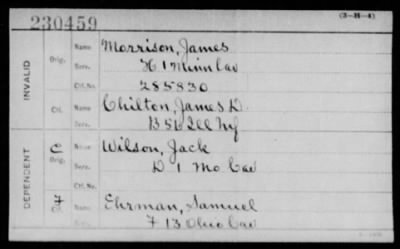 230459
(3-H-4)
INVALID
Orig. Name Morrison, James
Serv. H 1 Minn Cav
Ctf. No. 285830
Ctf. Name Chilton, James D.
Serv. B 56 Ill Inf
DEPENDENT
C Orig. Name Wilson, Jack
Serv. D 1 Mo Cav
Ctf. No.
7 Ctf. Name Ehrman, Samuel
Serv. F 13 Ohio Cav